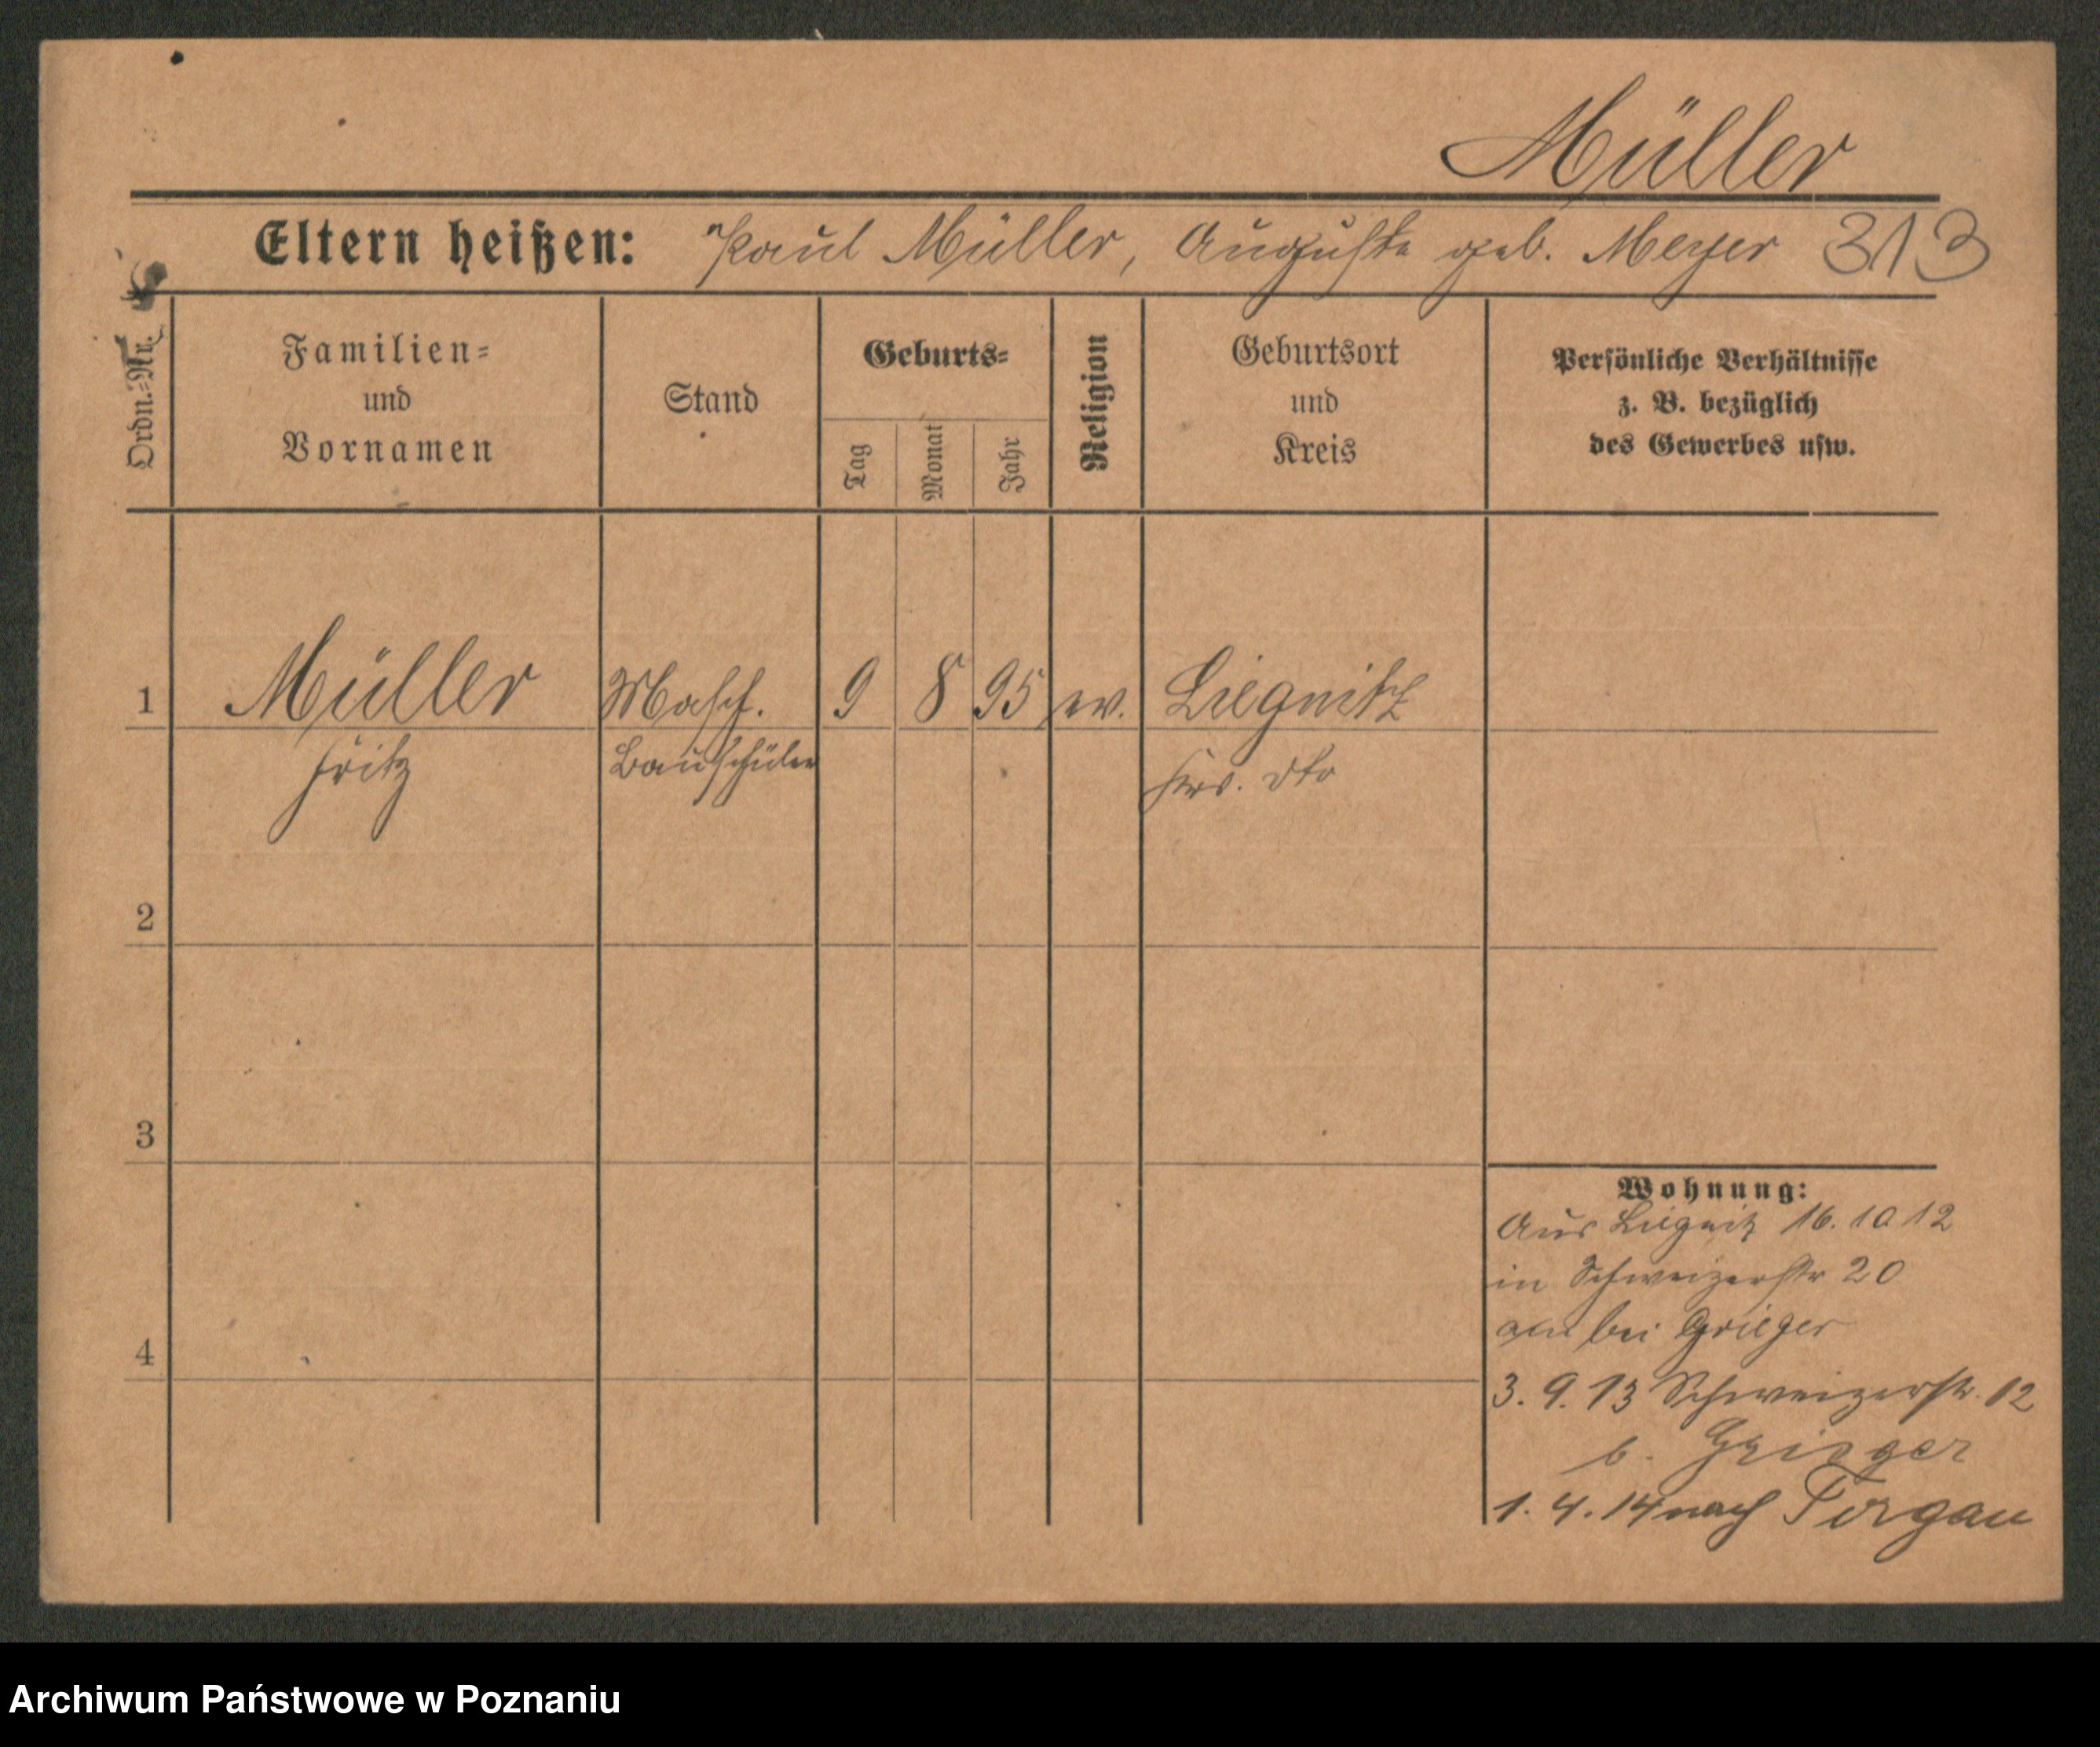 Müller
Eltern heißen: Paul Müller, Auguste geb. Meyer 313
Ordn.=Nr.
Familien=
und
Vornamen
Stand
Geburts=
Tag
Monat
Jahr
Religion
Geburtsort
und
Kreis
Persönliche Verhältnisse
z. B. bezüglich
des Gewerbes usw.
1 Müller Masch. 9 8 95 ev. Liegnitz
Fritz Bauschüler Krs. dto
2
3
4
Wohnung:
Aus Liegnitz 16. 10 12
in Schweizerstr 20
bei Grieger
3. 9. 13 Schweizerstr. 12
b. Grieger
1. 4. 14 nach Torgau
Archiwum Państwowe w Poznaniu